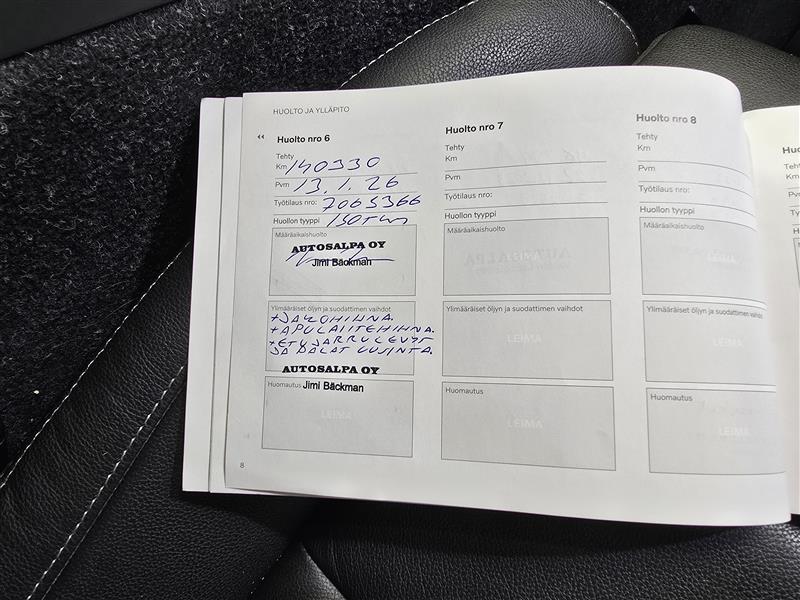 HUOLTO JA YLLÄPITO
Huolto nro 6
Tehty
Km 140330
Pvm 13.1.26
Työtilaus nro: 7065366
Huollon tyyppi 150TKM
Määräaikaishuolto
AUTOSALPA OY
Jimi Bäckman
Ylimääräiset öljyn ja suodattimen vaihdot
+JAKOHIHNA.
+APULAITEHIHNA.
+ETUJARRULEVYT
JA PALAT UUSINTA.
AUTOSALPA OY
Huomautus Jimi Bäckman
LEIMA
8
Huolto nro 7
Tehty
Km
Pvm
Työtilaus nro:
Huollon tyyppi
Määräaikaishuolto
Ylimääräiset öljyn ja suodattimen vaihdot
LEIMA
Huomautus
LEIMA
Huolto nro 8
Tehty
Km
Pvm
Työtilaus nro:
Huollon tyyppi
Määräaikaishuolto
LEIMA
Ylimääräiset öljyn ja suodattimen vaihdot
LEIMA
Huomautus
LEIMA